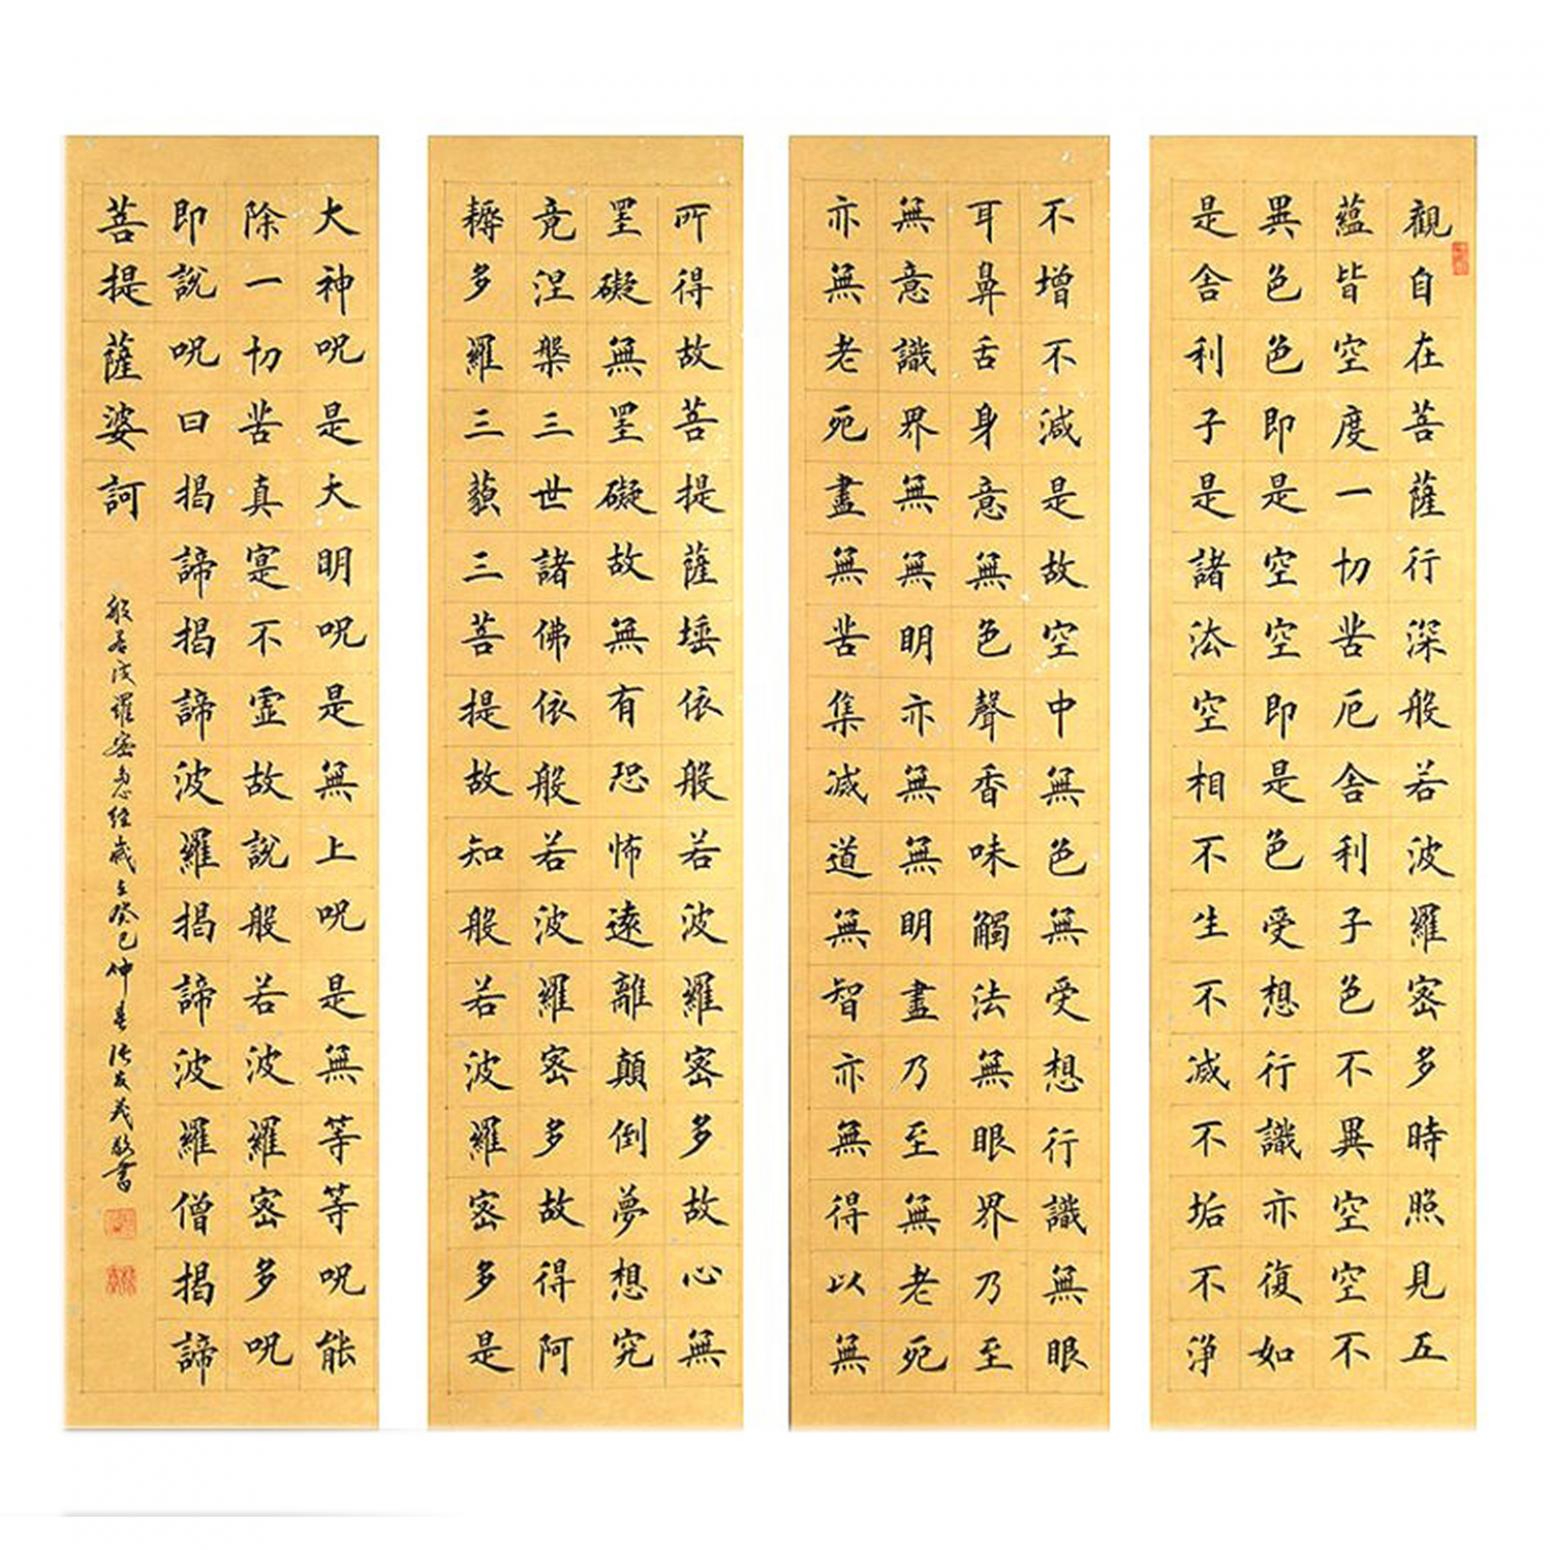 觀自在菩薩行深般若波羅密多時照見五
蘊皆空度一切苦厄舍利子色不異空空不
異色色即是空空即是色受想行識亦復如
是舍利子是諸法空相不生不滅不垢不淨
不增不減是故空中無色無受想行識無眼
耳鼻舌身意無色聲香味觸法無眼界乃至
無意識界無無明亦無無明盡乃至無老死
亦無老死盡無苦集滅道無智亦無得以無
所得故菩提薩埵依般若波羅密多故心無
罣礙無罣礙故無有恐怖遠離顛倒夢想究
竟涅槃三世諸佛依般若波羅密多故得阿
耨多羅三藐三菩提故知般若波羅密多是
大神咒是大明咒是無上咒是無等等咒能
除一切苦真寔不虛故說般若波羅密多咒
即說咒曰揭諦揭諦波羅揭諦波羅僧揭諦
菩提薩婆訶
般若波羅密多心經歲在癸巳仲春張友茂敬書